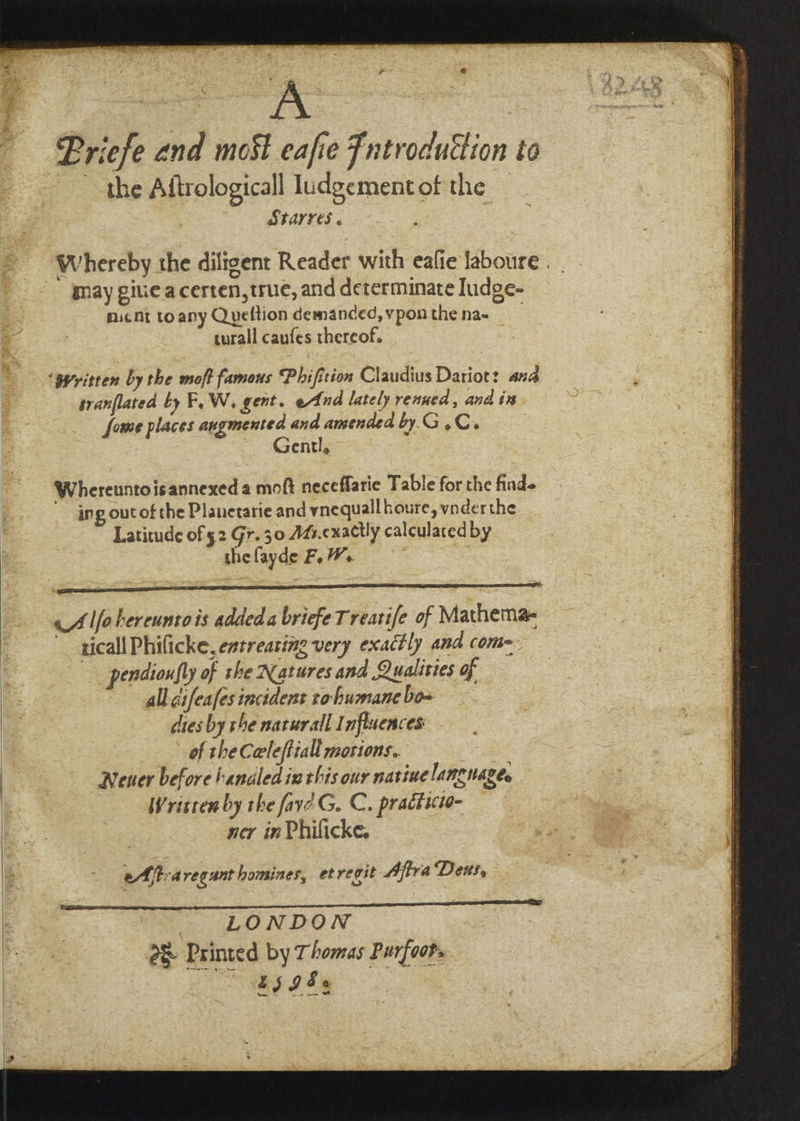 18248
A
Briefe and most easie Introduction to
the Aſtrologicall Iudgement of the
Starres.
Whereby the diligent Reader with eaſie laboure
may giue a certen, true, and determinate Iudge-
ment to any Queſtion demanded, vpon the na-
turall cauſes thereof.
Written by the moſt famous Phiſition Claudius Dariot: and
tranſlated by F. W. gent. And lately renued, and in
ſome places augmented and amended by G. C.
Gentl.
Whereunto is annexed a moſt neceſſarie Table for the find-
ing out of the Planetarie and vnequall houre, vnder the
Latitude of 52 Gr. 30 Mi. exactly calculated by
the ſayde F. W.
Alſo hereunto is added a briefe Treatiſe of Mathema-
ticall Phiſicke, entreating very exactly and com-
pendiouſly of the Natures and Qualities of
all diſeaſes incident to humane bo-
dies by the naturall Influences
of the Cœleſtiall motions.
Neuer before handled in this our natiue language.
Written by the ſayd G. C. practicio-
ner in Phiſicke.
Aſtra regunt homines, et regit Aſtra Deus.
LONDON
Printed by Thomas Purfoot.
1598.